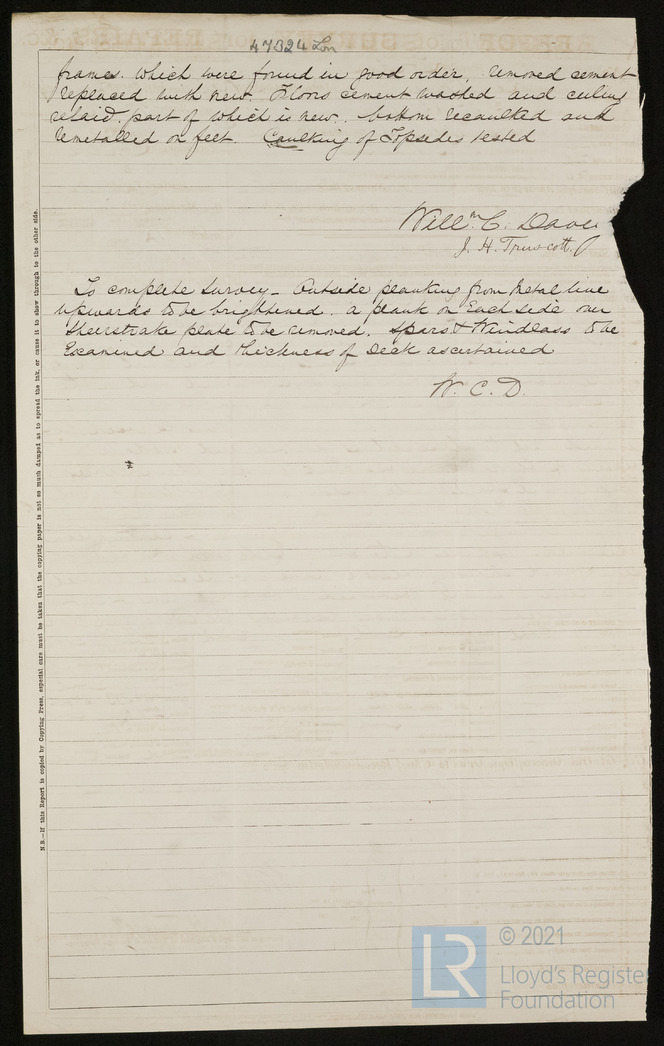 47324 Lon
frames. which were found in good order, removed cement
replaced with new. Floors cement washed and ceiling
relaid. part of which is new. bottom recaulked and
remetalled on felt. Caulking of Topsides tested
Willm. C. Davi
J. H. Truscott.
To complete Survey - Outside planking from metal line
upwards to be brightened. a plank on Each Side over
Sheerstrake plate to be removed. Spars & Windlass to be
Examined and thickness of Deck ascertained
W. C. D.
N.B.—If this Report is copied by Copying Press, especial care must be taken that the copying paper is not so much damped as to spread the ink, or cause it to show through to the other side.
LR
© 2021
Lloyd's Registe
Foundation